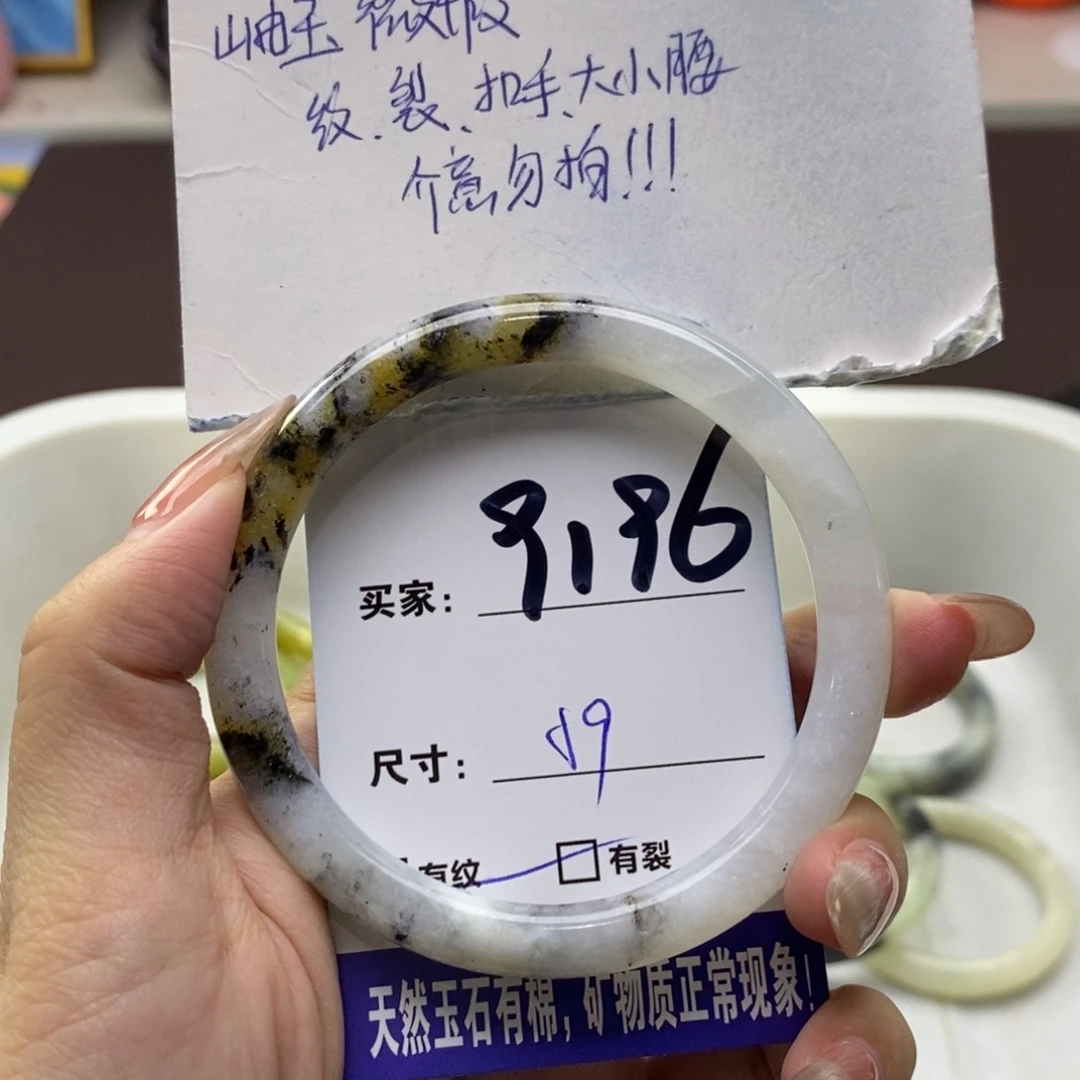 岫玉 微瑕
纹、裂、扣手、大小腰
介意勿拍!!!
买家: 9196
尺寸: 59
有纹 □有裂
天然玉石有棉,矿物质正常现象!